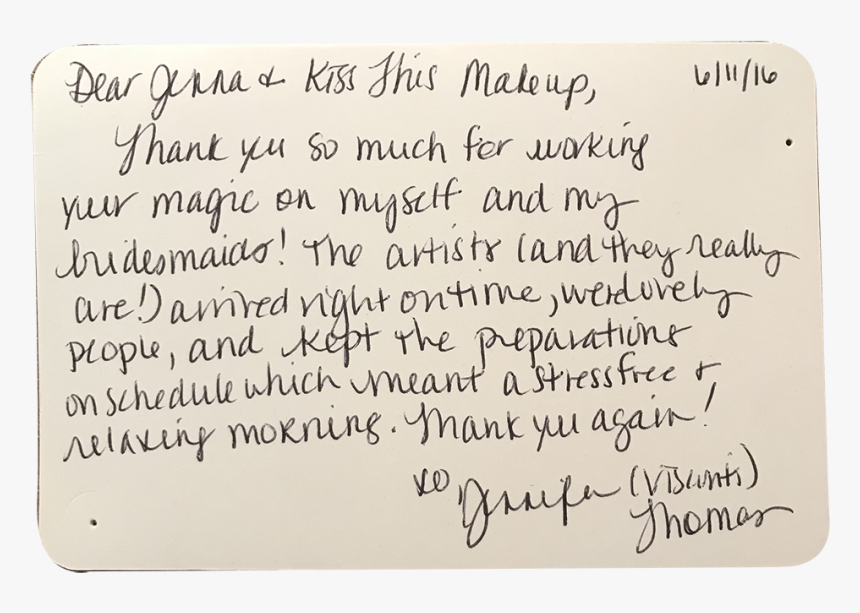 Dear Jenna & Kiss This Makeup, 6/11/16
Thank you so much for working
your magic on myself and my
bridesmaids! The artists (and they really
are!) arrived right on time, were lovely
people, and kept the preparations
on schedule which meant a stress free &
relaxing morning. Thank you again!
xo, Jennifer (Visconti)
Thomas